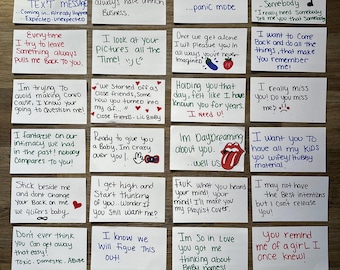 TEXT MESSAGE
Already Happened
-Expected Unexpected
always have
Business.
...panic mode.
Somebody
I really need Somebody
Tell me you're that Somebody
Everytime
I try to leave
Something always
pulls me Back to you.
I look at your
Pictures all the
Time.
Once we get alone
I will please you in
all ways you've never
Imagined.
I want to Come
Back and do all the
things, that make
You remember
me!
Im trying To
avoid making convo
Cause, I know I'm
going to Question me!
We Started off as
Close friends, Some
how you turned into
my
Close friend -
Holding you that
day, felt like I have
Known you for years.
I Need U!
I really miss
you! Do you miss
me?
I fantasize on our
intimacy we had
in the past! nobody
Compares To you!
Ready to give you
a Baby, Im Crazy
over you!
Im DayDreaming
about you
...well us
I want You To
have all my Kids
you wifey/Hubby
material.
Stick beside
me and dont change
Your Back on me
we lifers
I get high and
Start thinking
of you. Wonder if
you Still want me?
FUCK what you
heard your mind! your
mind! I'll make you my
Playlist Cover.
I may not have
The Best intentions
but I can't
release you!
Dont ever think
You Can get away
that easy!
Toxic. Domestic. Abuse
I know we
will Figure This
out!
Im So in Love
you got me
thinking about
Baby names!
You remind
me of a girl I
once knew!